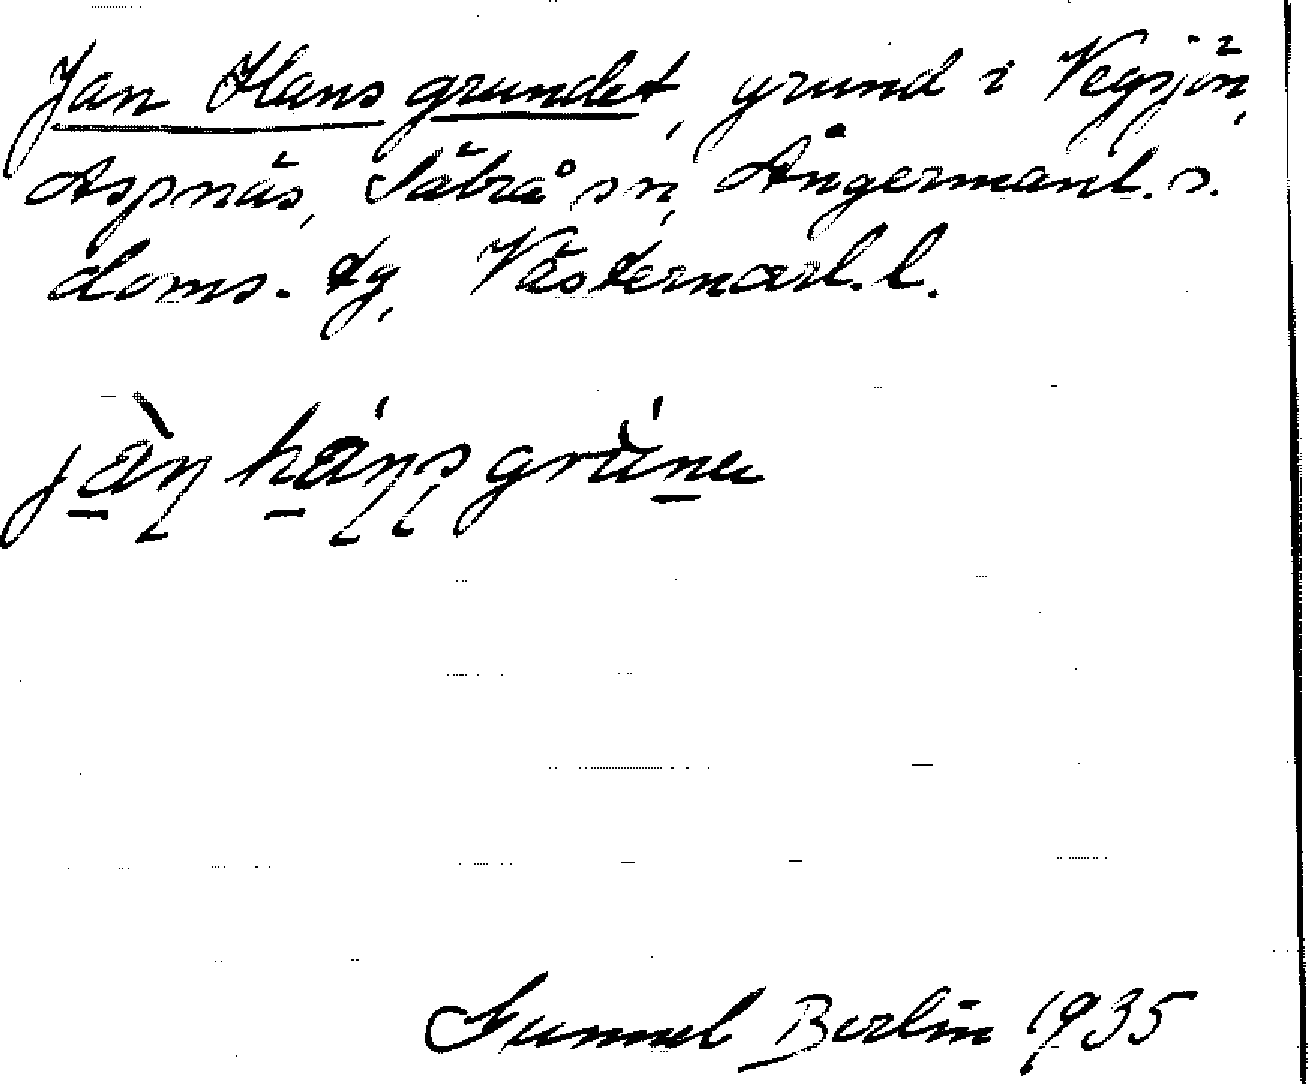 Jan Hans grundet, grund i Vegsjön,
Aspnäs, Säbrå sn, Ångermanl. s.
doms. tg, Västernorl. l.
Gunnel Berlin 1935